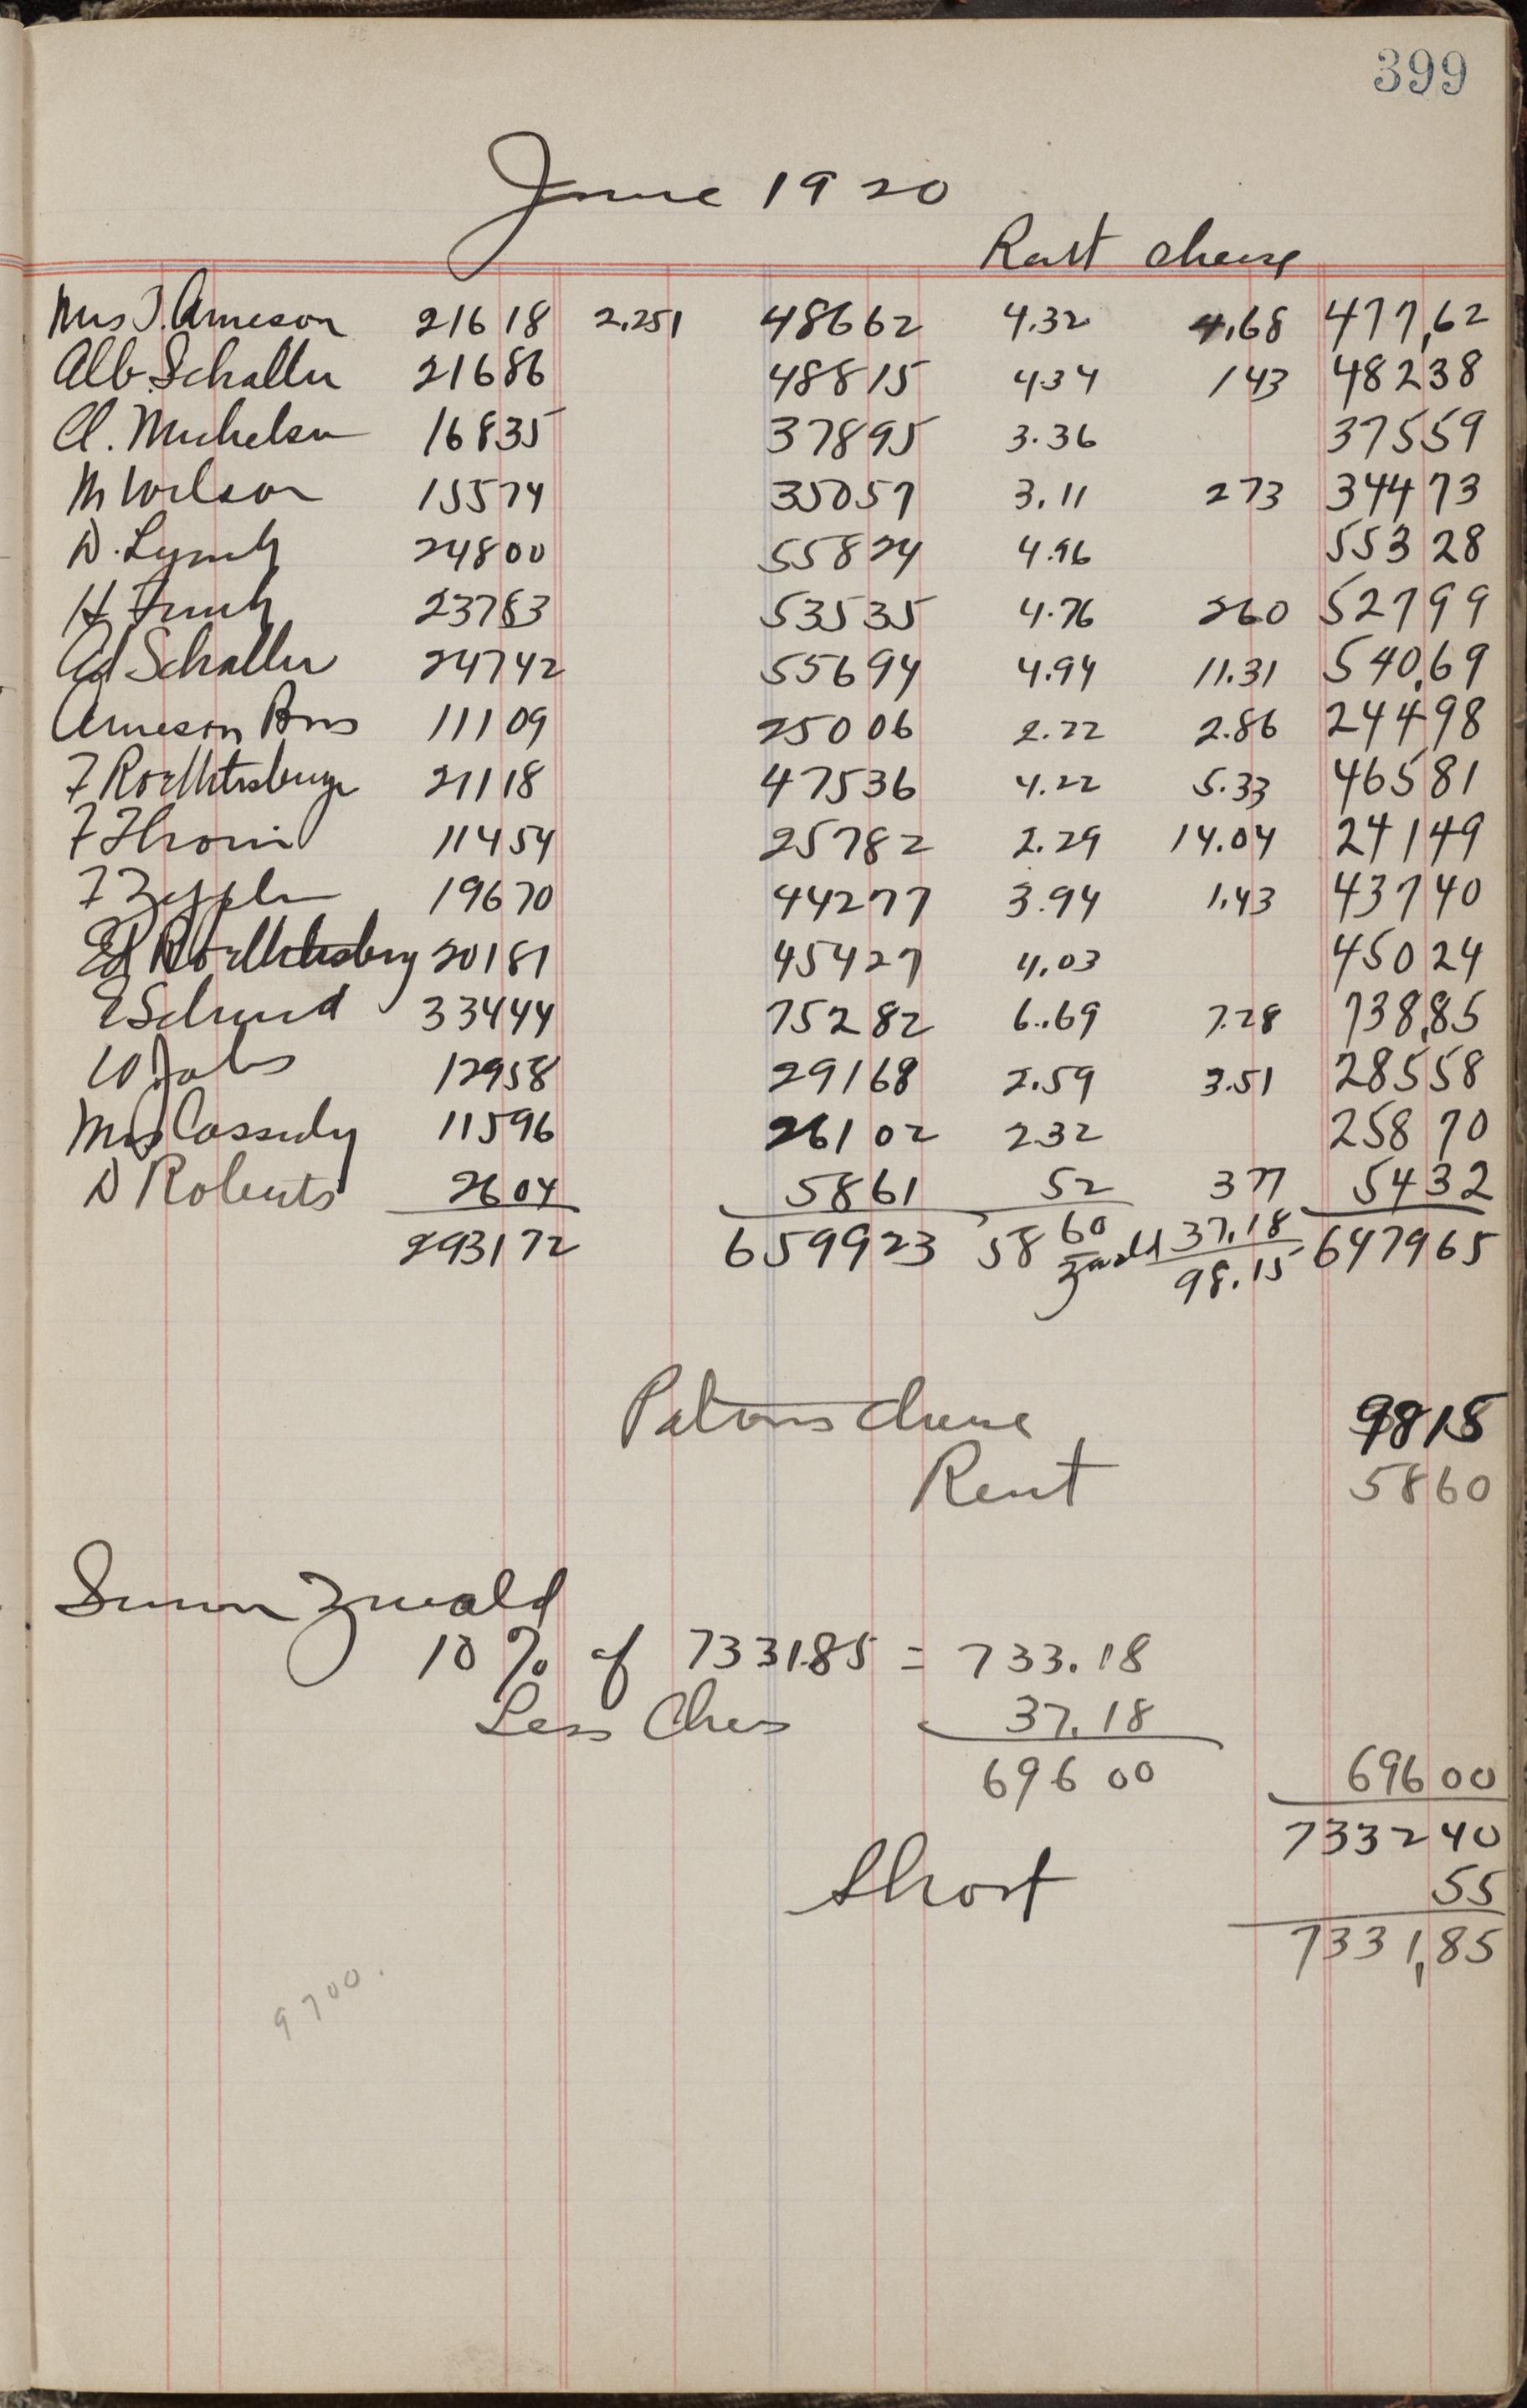 399
June 1920
Rent cheese
Mrs J. Arneson 21618 2.251 48662 4.32 4.68 477,62
Alb. Schaller 21686 48815 434 143 48238
Cl. Michelson 16835 37895 3.36 37559
M Wilson 15574 35057 3.11 273 34473
D. Lynch 24800 55824 4.96 55328
H Funk 23783 53535 4.76 260 52799
Ed Schaller 24742 55694 4.94 11.31 540,69
Arneson Bros 11109 25006 2.22 2.86 24498
F 21118 47536 4.22 5.33 46581
F 11454 25782 2.29 14.04 24149
F 19670 44277 3.94 1.43 43740
Ed 20181 45427 4.03 45024
E Schmid 33444 75282 6.69 7.28 738,85
W 12958 29168 2.59 3.51 28558
Mrs Cassidy 11596 26102 232 25870
D Roberts 2604 5861 52 377 5432
293172 659923 5860 Zwald 37.18 647965
98.15
Patrons cheese 9815
Rent 5860
Simon Zwald
10 % of 7331.85 = 733.18
Less Ches 37.18
696 00 69600
733240
Short 55
7331,85
9700.